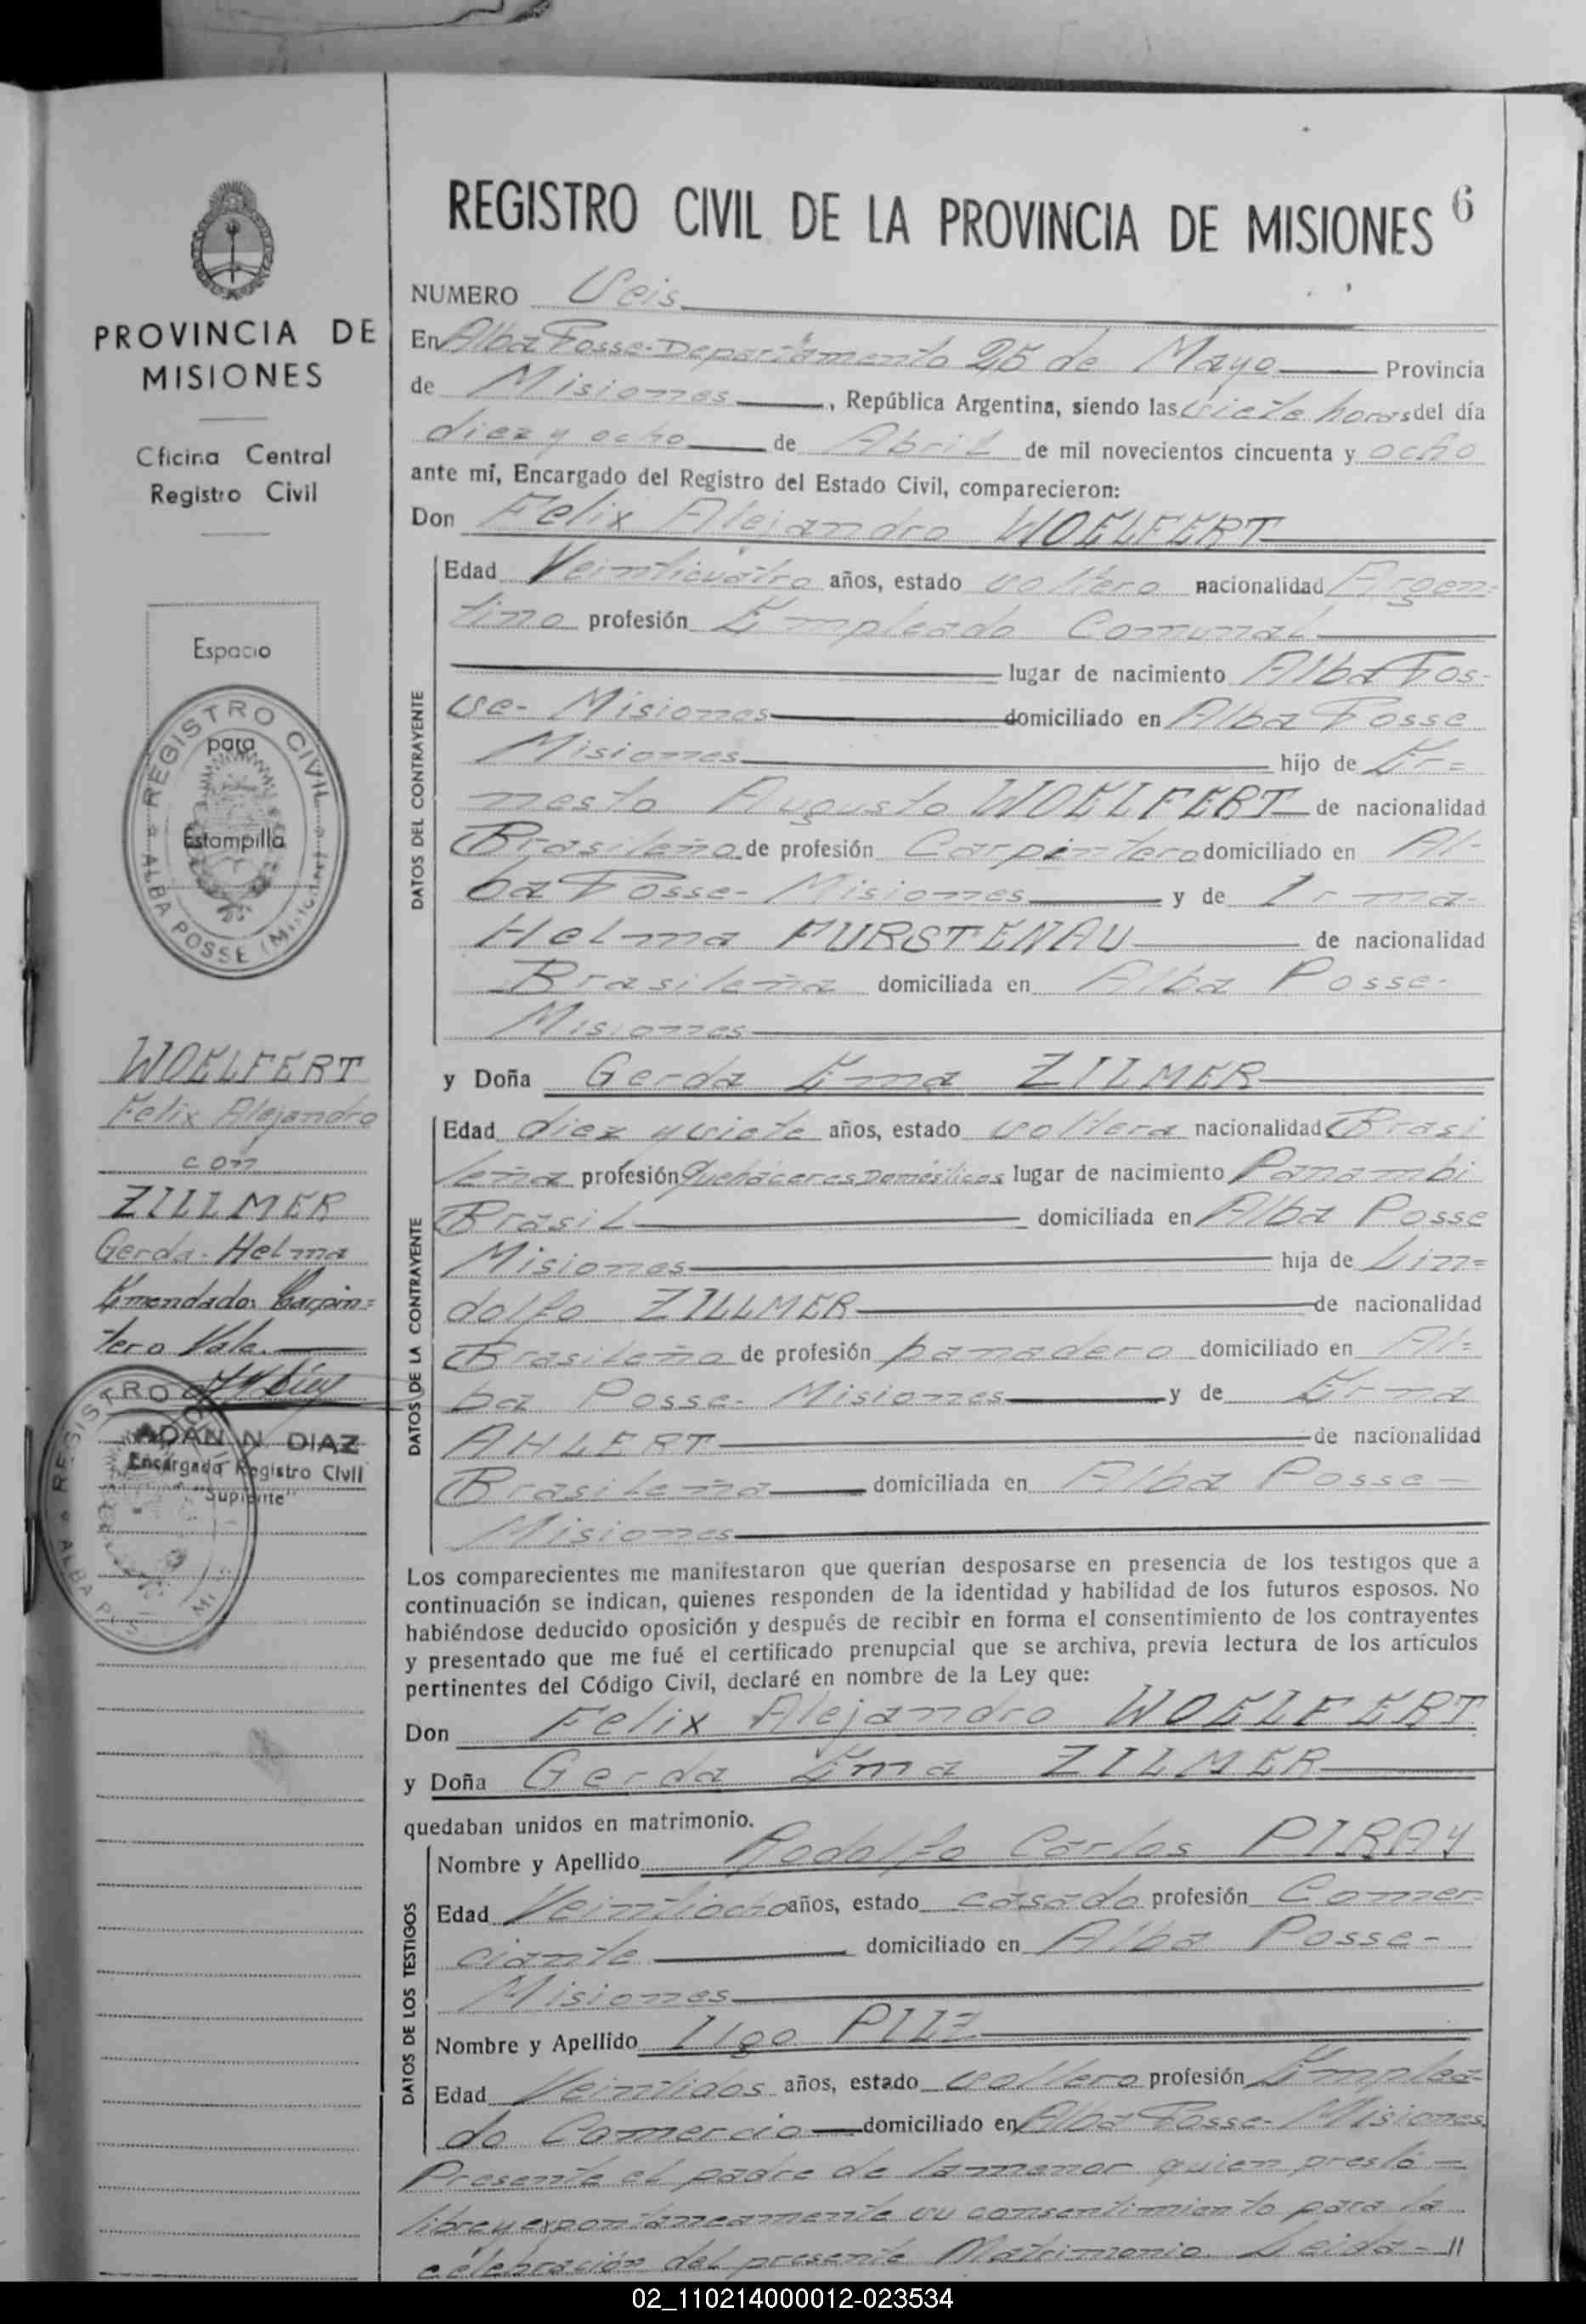 REGISTRO CIVIL DE LA PROVINCIA DE MISIONES 6
NUMERO Seis
En Alba Posse-Departamento 25 de Mayo Provincia
de Misiones, República Argentina, siendo las siete horas del día
diez y ocho de Abril de mil novecientos cincuenta y ocho
ante mí, Encargado del Registro del Estado Civil, comparecieron:
Don Felix Alejandro WOELFERT
DATOS DEL CONTRAYENTE
Edad Veinticuatro años, estado soltero nacionalidad Argen=
tino profesión Empleado Comunal
lugar de nacimiento Alba Pos-
se- Misiones domiciliado en Alba Posse
Misiones hijo de Er=
nesto Augusto WOELFERT de nacionalidad
Brasileño de profesión Carpintero domiciliado en Al-
ba Posse- Misiones y de Irma-
Helma FURSTENAU de nacionalidad
Brasileña domiciliada en Alba Posse-
Misiones
y Doña Gerda Ema ZILMER
DATOS DE LA CONTRAYENTE
Edad diez y siete años, estado soltera nacionalidad Brasi
leña profesión Quehaceres Domésticos lugar de nacimiento Panambi
Brasil domiciliada en Alba Posse
Misiones hija de Lin=
dolfo ZILLMER de nacionalidad
Brasileño de profesión panadero domiciliado en Al=
ba Posse- Misiones y de Erma
AHLERT de nacionalidad
Brasileña domiciliada en Alba Posse-
Misiones
Los comparecientes me manifestaron que querían desposarse en presencia de los testigos que a
continuación se indican, quienes responden de la identidad y habilidad de los futuros esposos. No
habiéndose deducido oposición y después de recibir en forma el consentimiento de los contrayentes
y presentado que me fué el certificado prenupcial que se archiva, previa lectura de los artículos
pertinentes del Código Civil, declaré en nombre de la Ley que:
Don Felix Alejandro WOELFERT
y Doña Gerda Ema ZILMER
quedaban unidos en matrimonio.
DATOS DE LOS TESTIGOS
Nombre y Apellido Rodolfo Carlos PIRAY
Edad Veintiocho años, estado casado profesión Comer
ciante domiciliado en Alba Posse-
Misiones
Nombre y Apellido Ugo PILZ
Edad Veintidos años, estado soltero profesión Emplea-
do Comercio domiciliado en Alba Posse- Misiones
Presente el padre de la menor quien prestó-
libre y expontaneamente su consentimiento para la
celebración del presente Matrimonio. Leida- //
PROVINCIA DE
MISIONES
Oficina Central
Registro Civil
Espacio
para
Estampilla
REGISTRO CIVIL
ALBA POSSE (Misiones)
WOELFERT
Felix Alejandro
con
ZILLMER
Gerda- Helma
Emendado: Carpin=
tero Vale.
ADAN N. DIAZ
Encargado Registro Civil
"Suplente"
02_110214000012-023534